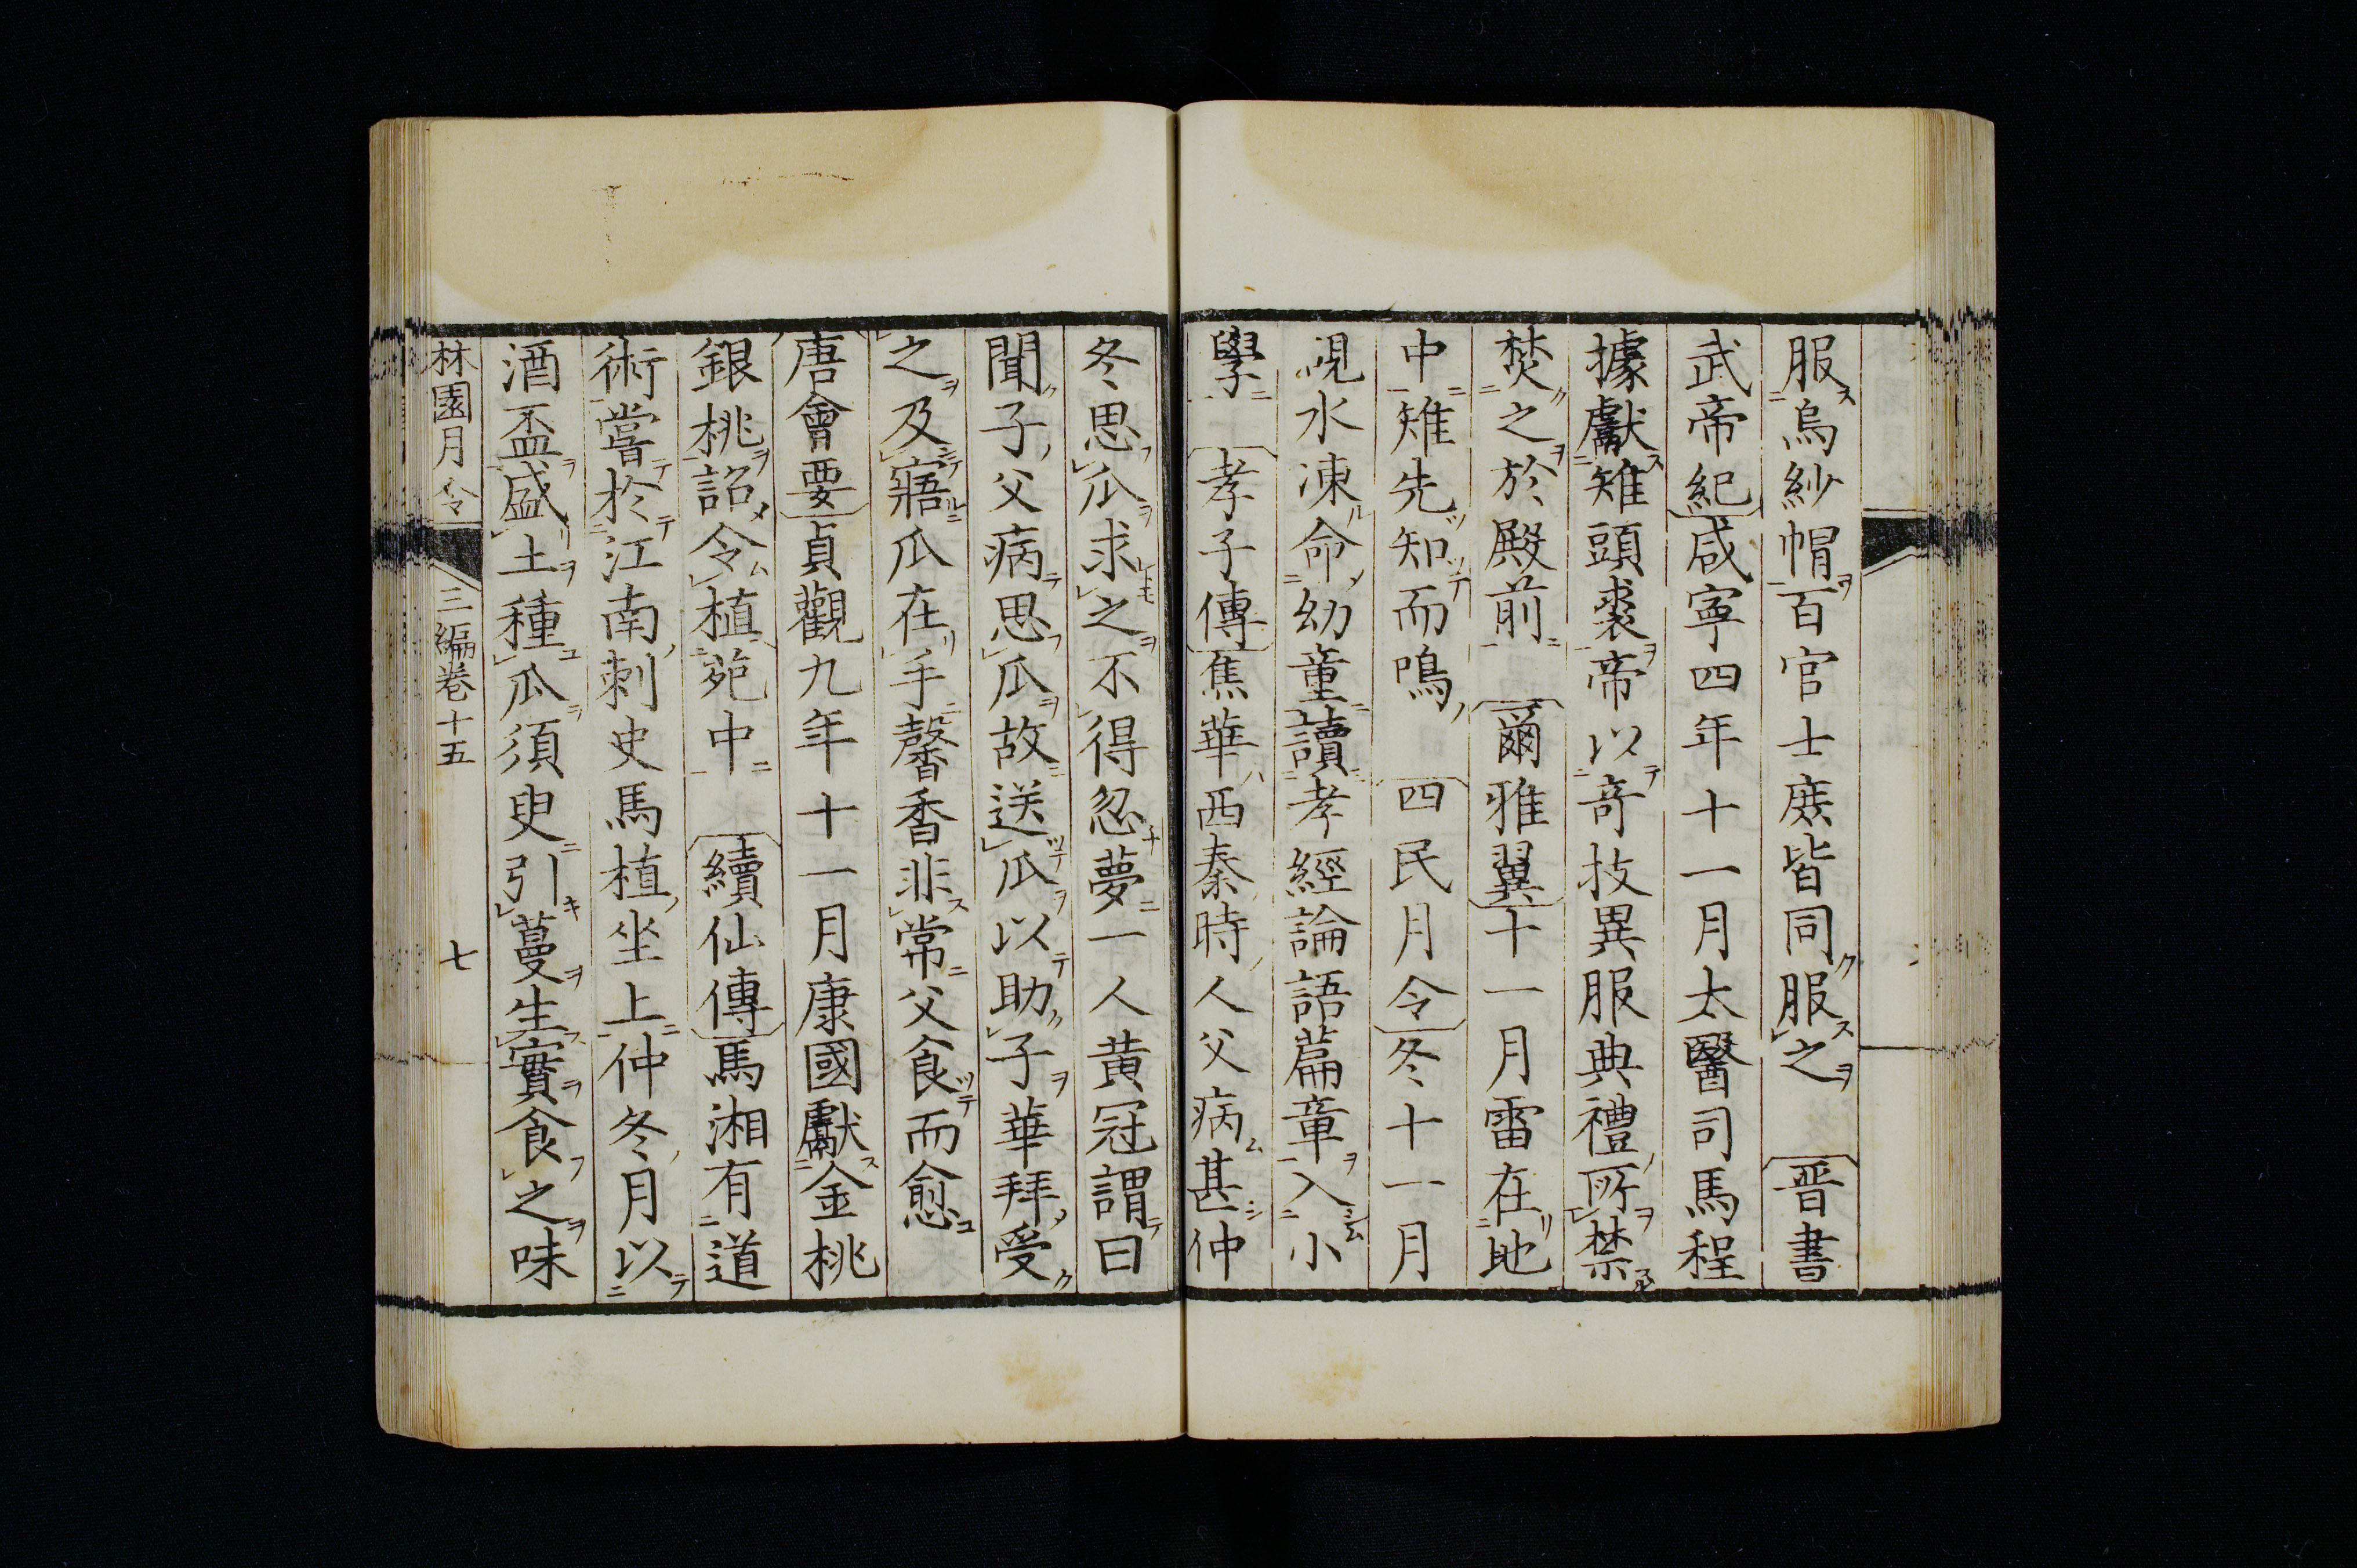 服烏紗帽百官士庻皆同服之　晋書
武帝紀咸寧四年十一月太醫司馬程
據獻雉頭裘帝以奇技異服典禮所禁
焚之於殿前　爾雅翼十一月雷在地
中雉先知而鳴　四民月令冬十一月
硯水凍命幼童讀孝經論語篇章入小
學　孝子傳焦華西秦時人父病甚仲
冬思瓜求之不得忽夢一人黄冠謂曰
聞子父病思瓜故送瓜以助子華拜受
之及寤瓜在手馨香非常父食而愈
唐會要貞觀九年十一月康國獻金桃
銀桃詔令植苑中　續仙傳馬湘有道
術嘗於江南刺史馬植坐上仲冬月以
酒盃盛土種瓜須臾引蔓生實食之味
林園月令　三編卷十五　七